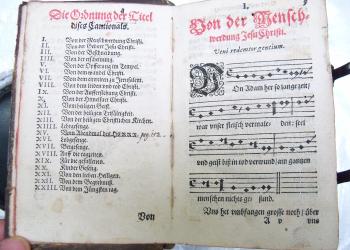 Die Ordnung der Titel
dises Cantionals.
I. Von der Menschwerdung Christi.
II. Von der Geburt Jesu Christi.
III. Von der Beschneidung.
IIII. Von der erscheinung.
V. Vom Opfferung im Tempel.
VI. Vom wandel Christi.
VII. Vom einreiten zu Jerusalem.
VIII. Vom leiden vnd tod Christi.
IX. Von der Aufferstehung Christi.
X. Von der Himelfart Christi.
XI. Vom heiligen Geist.
XII. Von der heiligen Dreyfaltigkeit.
XIII. Von der heiligen Christlichen Kirchen.
XIIII. Lobgesenge.
XV. Vom Abendmal des HERRN.
XVI. Lobgesenge.
XVII. Betgesenge.
XVIII.
XIX. Für die gefallenen.
XX. Kinder Gesang.
XXI. Von den lieben Heiligen.
XXII. Vom Begrebnuß.
XXIII. Vom Jüngsten tag.
Von
I.
Von der Mensch-
werdung Jesu Christi.
Veni redemtor gentium.
VOn Adam her so lange zeit/
war vnser fleisch vermale- deit: seel
vnd geist biß in tod verwund/ am gantzen
menschen nichts gesund.
Vns het vmbfangen grosse noth/ über
A v vns